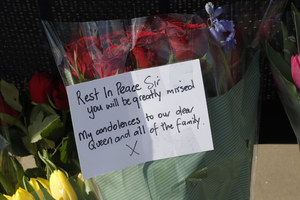 Rest In Peace Sir
you will be greatly missed
My condolences to our dear
Queen and all of the family.
X